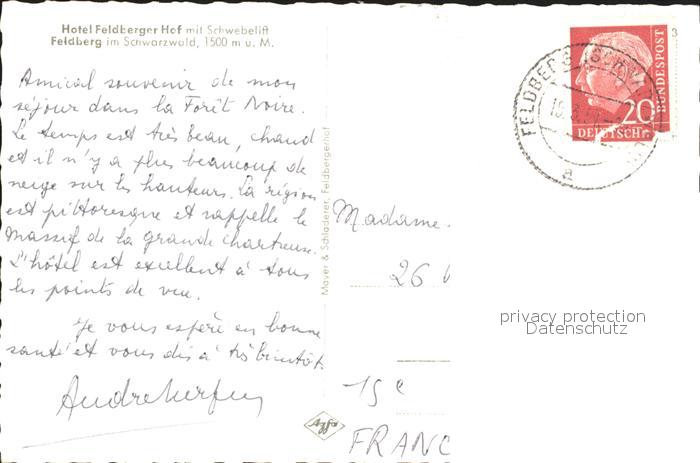 Hotel Feldberger Hof mit Schwebelift
Feldberg im Schwarzwald, 1500 m u. M.
Amical souvenir de mon
séjour dans la Forêt Noire.
Le temps est très beau, chaud
et il n'y a plus beaucoup de
neige sur les hauteurs. La région
est pittoresque et rappelle le
massif de la grande chartreuse.
L'hôtel est excellent à tous
les points de vue.
Je vous espère en bonne
santé et vous dis à très bientôt.
Mayer & Schladerer, Feldbergerhof
Agfa
Madame.
26
15 e
FRANC
FELDBERG (SCHWARZW
a
20
DEUTSCHE
BUNDESPOST
3
privacy protection
Datenschutz